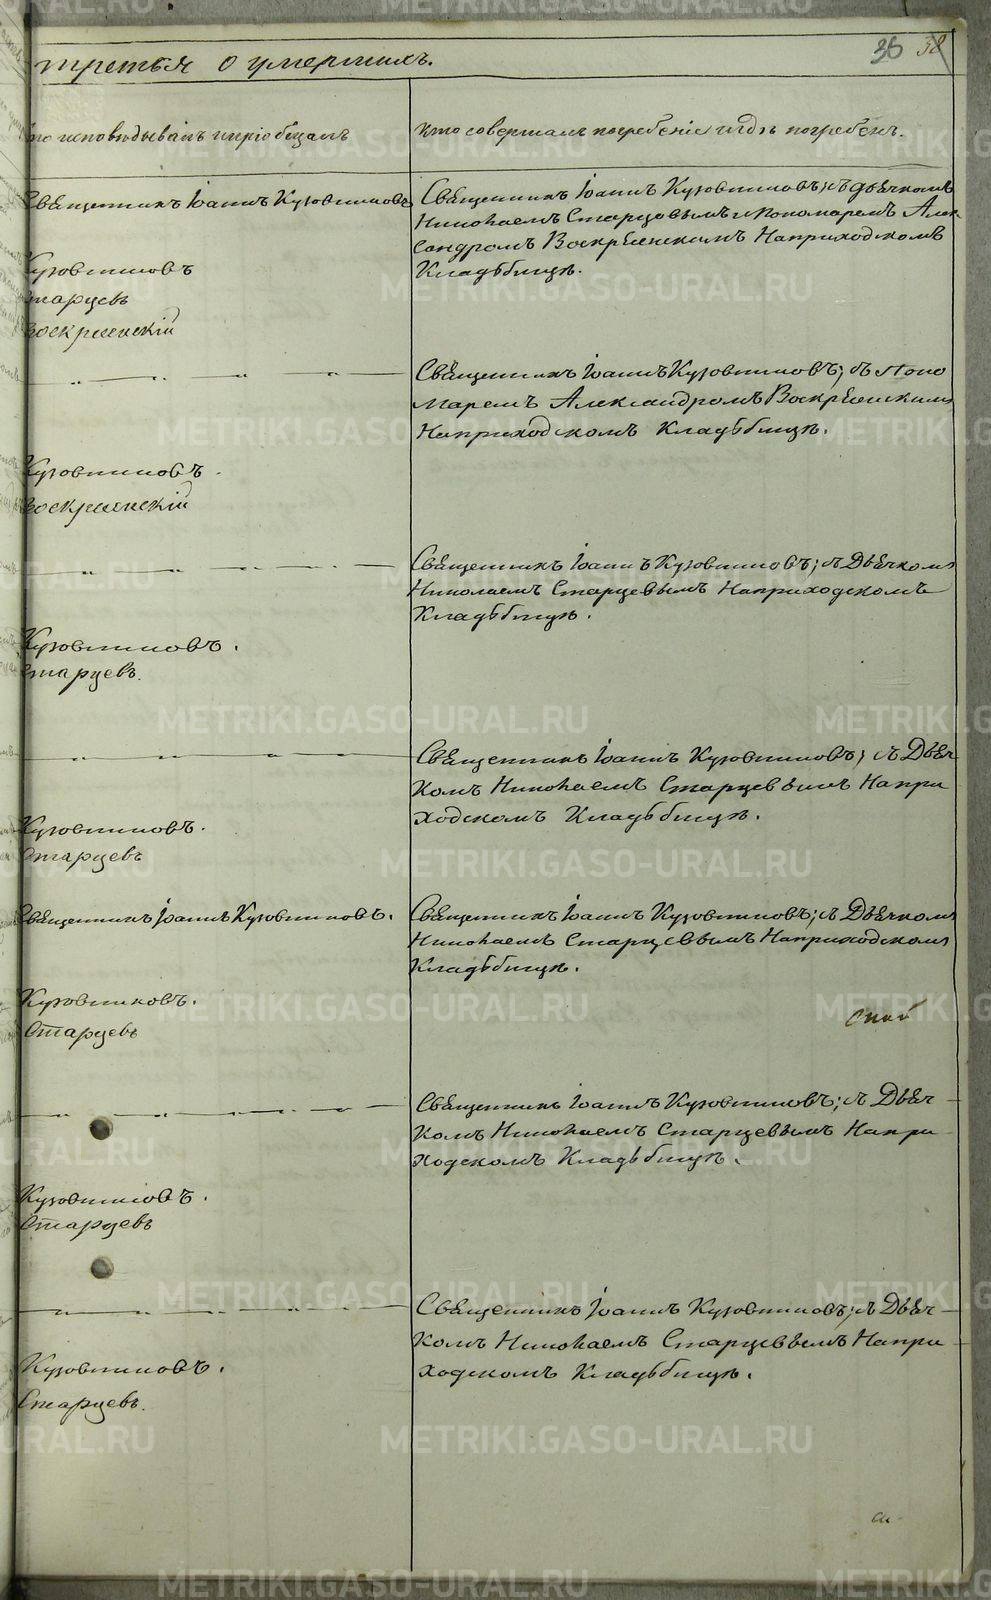 третья о умершихъ.
38
кто исповѣдывалъ и пріобщалъ
кто совершалъ погребеніе и гдѣ погребенъ.
Священникъ Іоаннъ Кузовниковъ
Священникъ Іоаннъ Кузовниковъ; съ дьячкомъ
Николаемъ Старцовымъ и пономаремъ Алек
сандромъ Воскресенскимъ На приходскомъ
Кладбищѣ.
Кузовниковъ
Старцевъ
Воскресенскій
Священникъ Іоаннъ Кузовниковъ; съ Поно
маремъ Александромъ Воскресенскимъ
На приходскомъ Кладбищѣ.
Кузовниковъ.
Воскресенскій
Священникъ Іоаннъ Кузовниковъ; съ Дьячкомъ
Николаемъ Старцевымъ На приходскомъ
Кладбищѣ.
Кузовниковъ.
Старцевъ.
Священникъ Іоаннъ Кузовниковъ; съ Дьяч
комъ Николаемъ Старцевымъ На при
ходскомъ Кладбищѣ.
Кузовниковъ.
Старцевъ
Священникъ Іоаннъ Кузовниковъ.
Священникъ Іоаннъ Кузовниковъ; съ Дьячкомъ
Николаемъ Старцевымъ На приходскомъ
Кладбищѣ.
Кузовниковъ.
Старцевъ
Священникъ Іоаннъ Кузовниковъ; съ Дьяч
комъ Николаемъ Старцевымъ На при
ходскомъ Кладбищѣ.
Кузовниковъ.
Старцевъ
Священникъ Іоаннъ Кузовниковъ; съ Дьяч
комъ Николаемъ Старцевымъ На при
ходскомъ Кладбищѣ.
Кузовниковъ.
Старцевъ.
METRIKI.GASO-URAL.RU